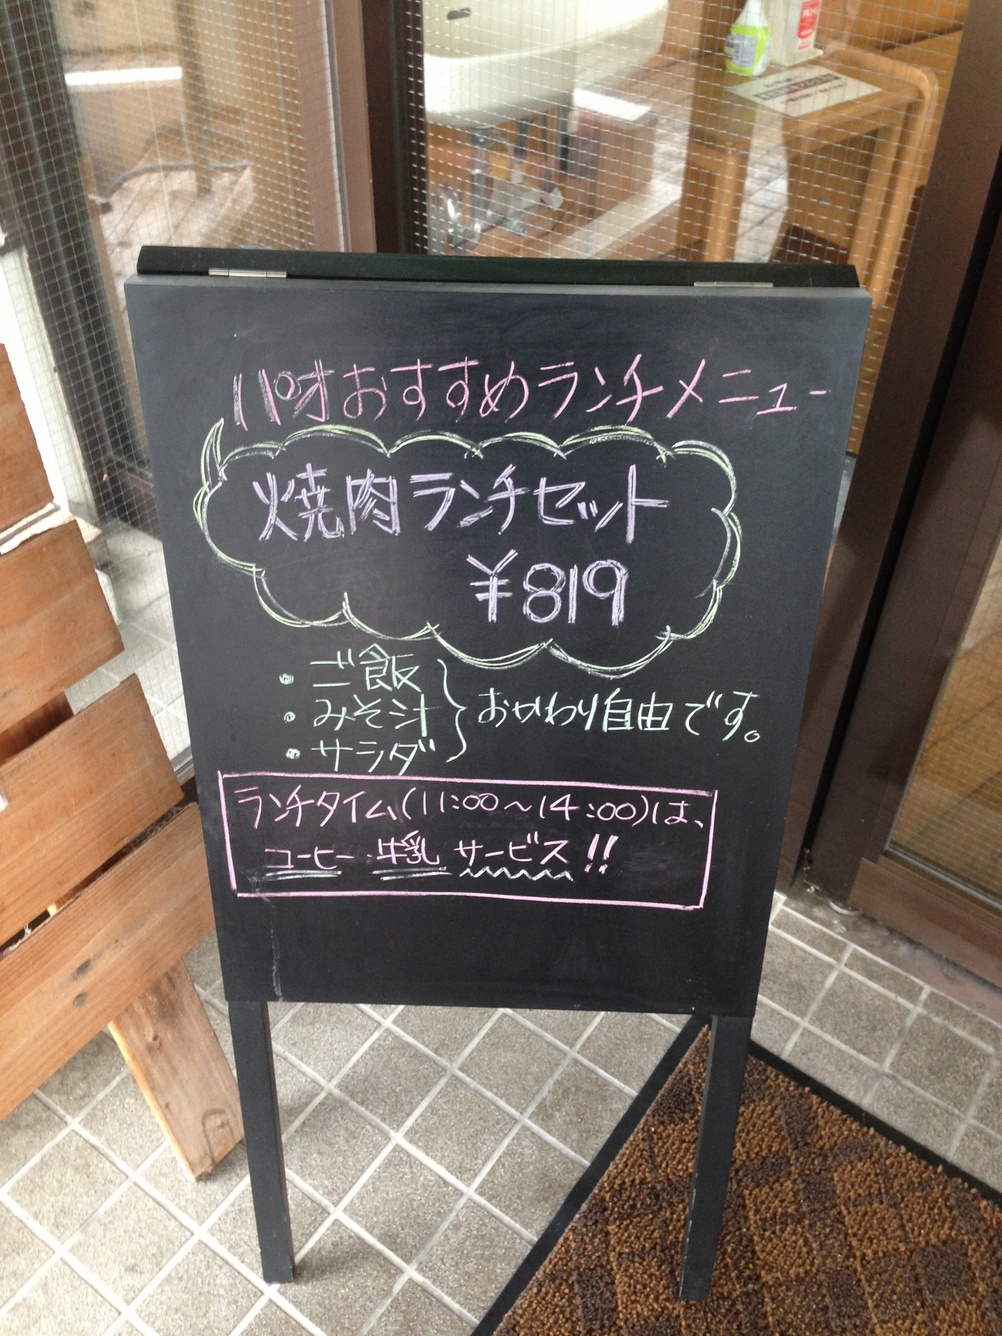 パオおすすめランチメニュー
焼肉ランチセット
¥819
・ご飯
・みそ汁
・サラダ
おかわり自由です。
ランチタイム(11:00〜14:00)は、
コーヒー・牛乳 サービス!!